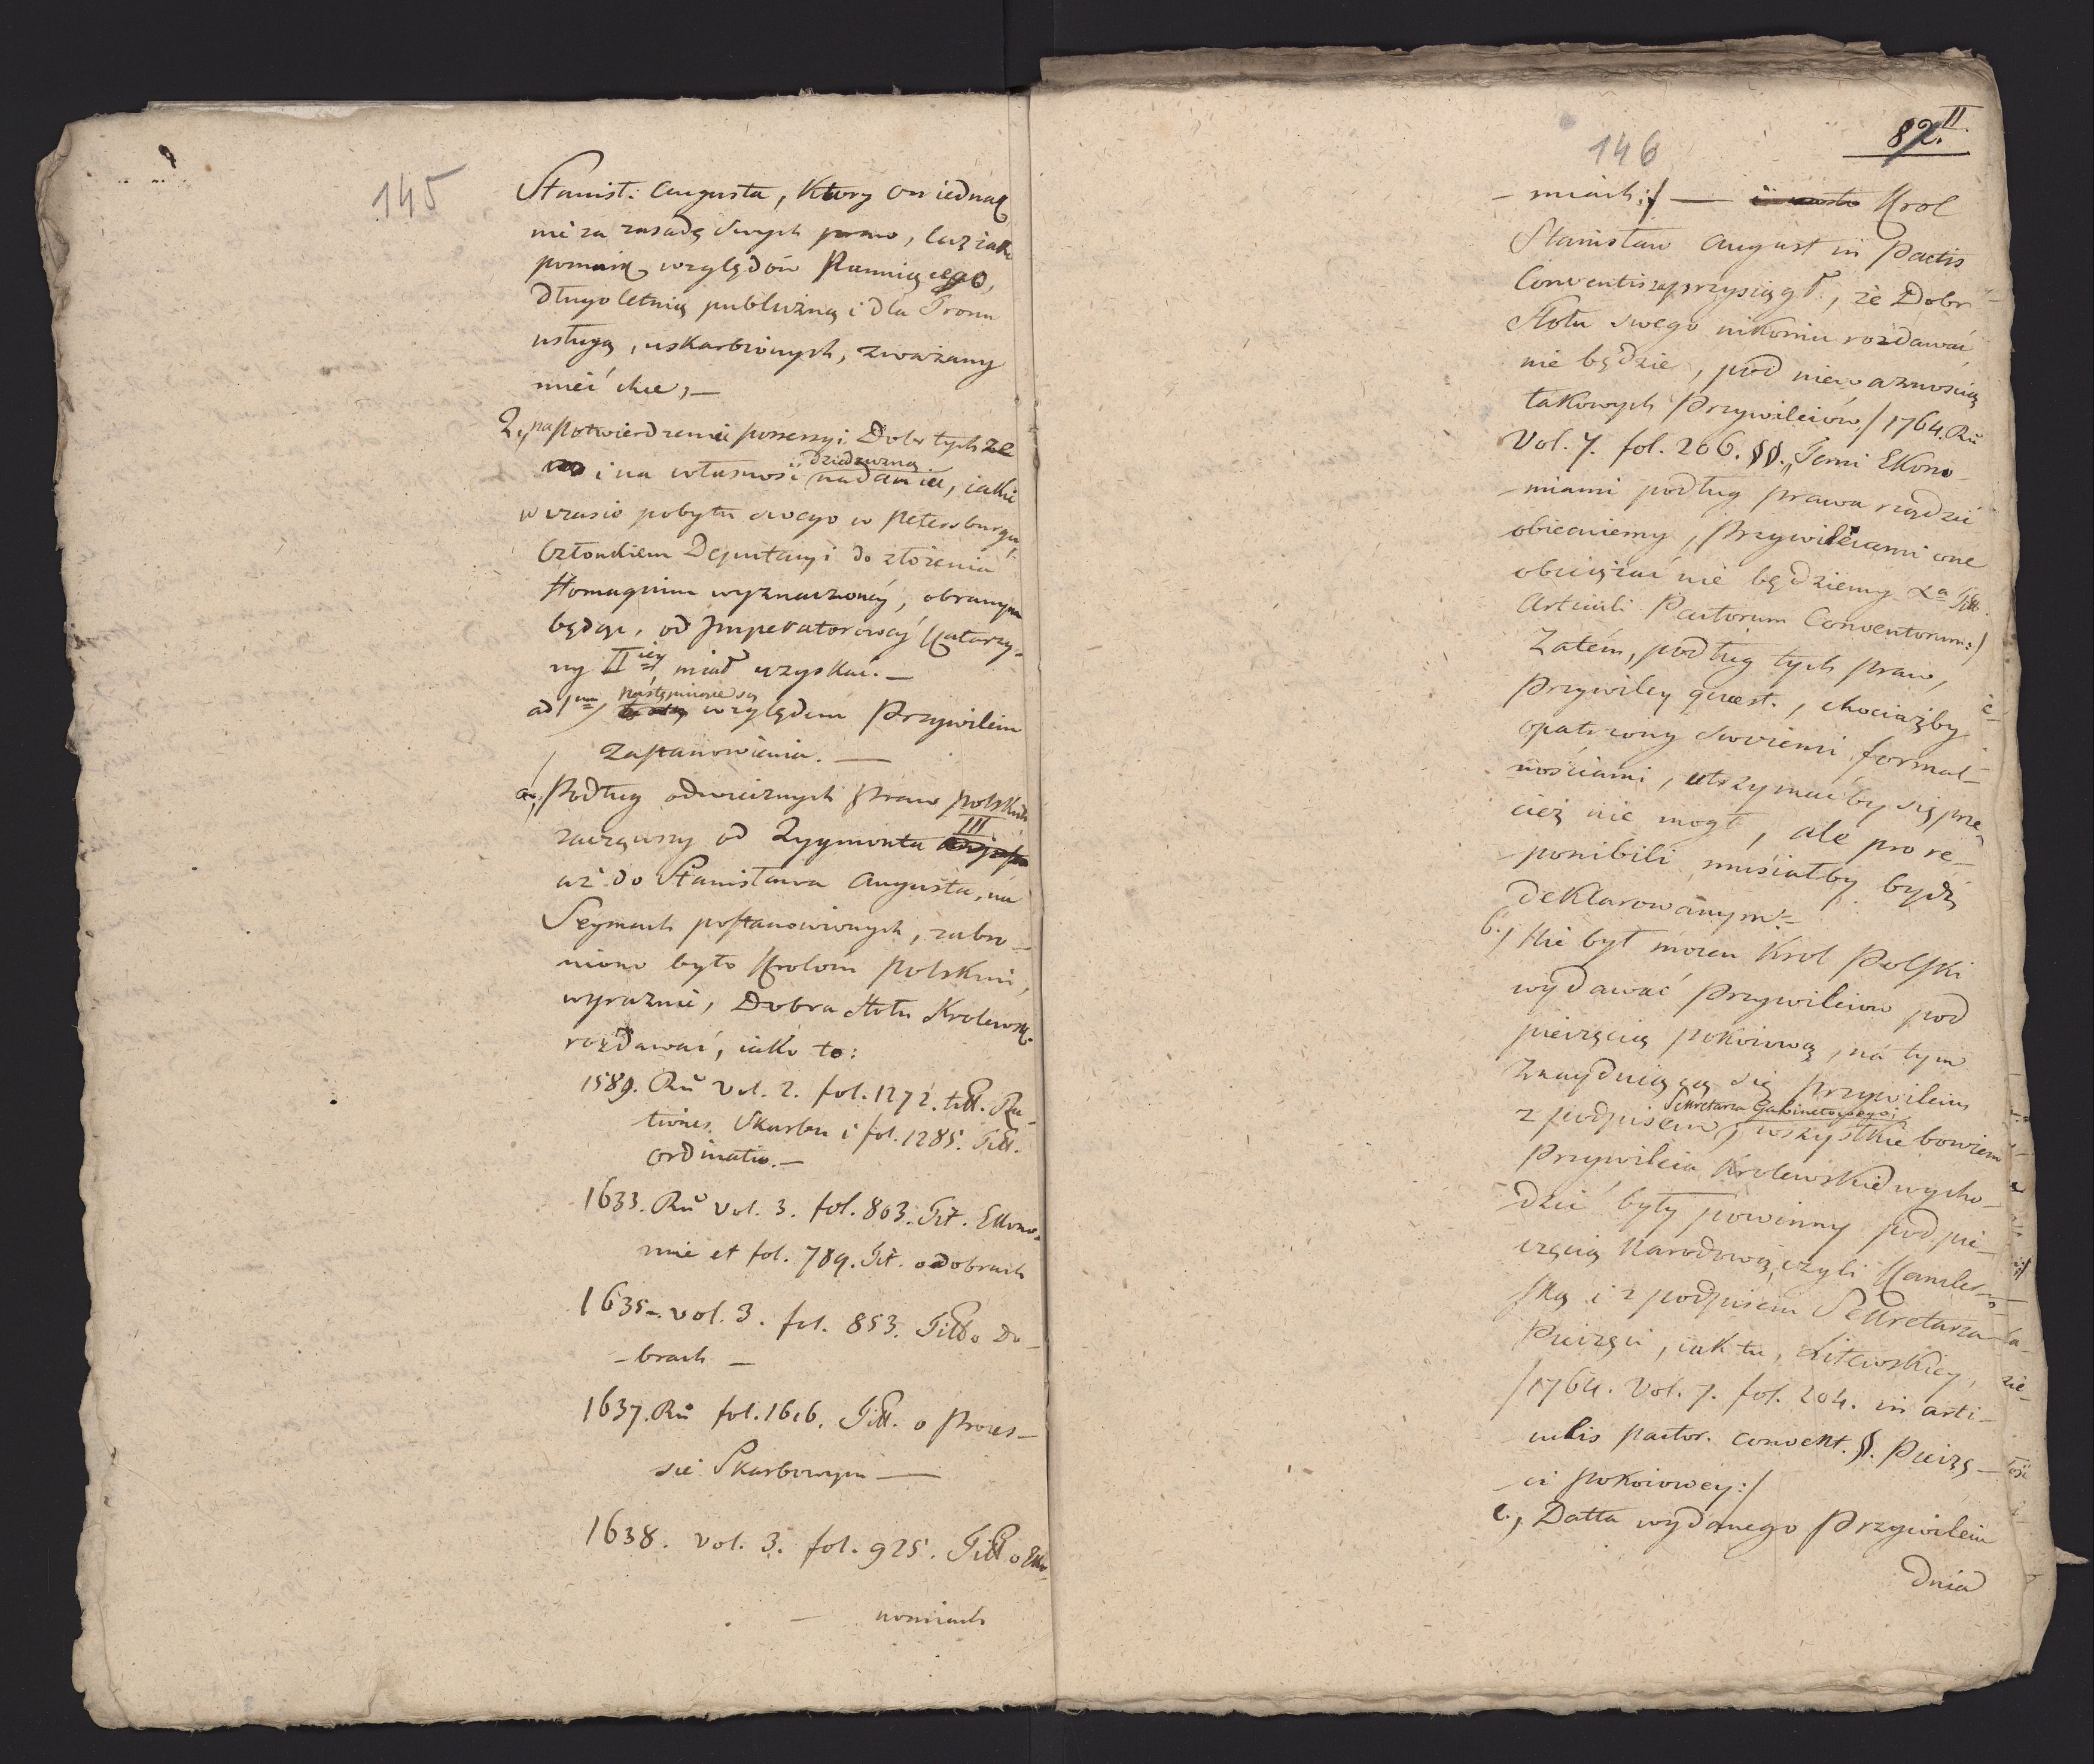 145
Stanisł: Augusta, Ktory on iednak
nie za zasadę swych praw, lecz iako
pomnik względów Panuiącego,
długoletnią publiczną i dla Tronu
usługą, uskarbionych, zważany
mieć chce,—
2, na potwierdzenie possessyi Dobr tych
i na własność dziedziczną nadanie, iakie
w czasie pobytu swego w Petersburgu,
Członkiem Deputacyi do złożenia
Homagium wyznaczoney, obranym
będąc, od Imperatorowey Katarzy-
ny II iey miał uzyskać.—
ad 1um, następuiące są względem Przywileiu
zastanowienia.—
a, Podług odwiecznych praw polskich
zacząwszy od Zygmonta III.
aż do Stanisława Augusta, na
Seymach postanowionych, zabro-
niono było Krolóm polskim,
wyraznie, Dobra Stołu Krolewsk.
rozdawać, iako to:
1589. Ru vol. 2. fol. 1272. titt. Ra-
tiones Skarbu i fol. 1285. Titt.
ordinatio.—
1633. Ru vol. 3. fol. 803. Tit. Ekono-
mie et fol. 789. Tit. o dobrach
1635. vol. 3. fol. 853. Titt o Do-
-brach —
1637. Ru fol. 1616. Titt. o Proces-
sie Skarbowym —
1638. vol. 3. fol. 925. Titt o Eko-
— nomiach
146
82. II.
-miach:/ — Krol
Stanisław August in Pactis
Conventis zaprzysiągł, że Dobr
Stołu swego nikomu rozdawać
nie będzie, pod nieważnością
takowych Przywileiów. / 1764. Ru
Vol. 7. fol. 206. §§. Temi Ekono-
-miami podług prawa rządzić
obiecuiemy, Przywileiami one
obciążać nie będziemy Titt.
Articuli Pactorum Conventorum:/
Zatém, podług tych praw,
Przywiley quest., chociażby
opatrzony swoiemi formal-
nościami, utrzymać by się prze-
cież nie mogł, ale pro re-
ponibili musiałby bydź
deklarowanym.
b., Nie był mocen Krol Polski
wydawać Przywileiow pod
pieczęcią pokoiową, na tym
znayduiącą się Przywileiu
z podpisem Sekretarza Gabinetowego; wszystkie bowiem
Przywileia Krolewskie wycho-
dzić były powinny pod pie-
częcią Narodową czyli Kancler-
ską i z podpisem Sekretarza
Pieczęci, iak tu, Litewskiey,
/1764. Vol. 7. fol. 204. in arti-
culis pactor. convent. §. Pieczę-
ci pokoiowey:/
c., Datta wydanego Przywileiu
dnia